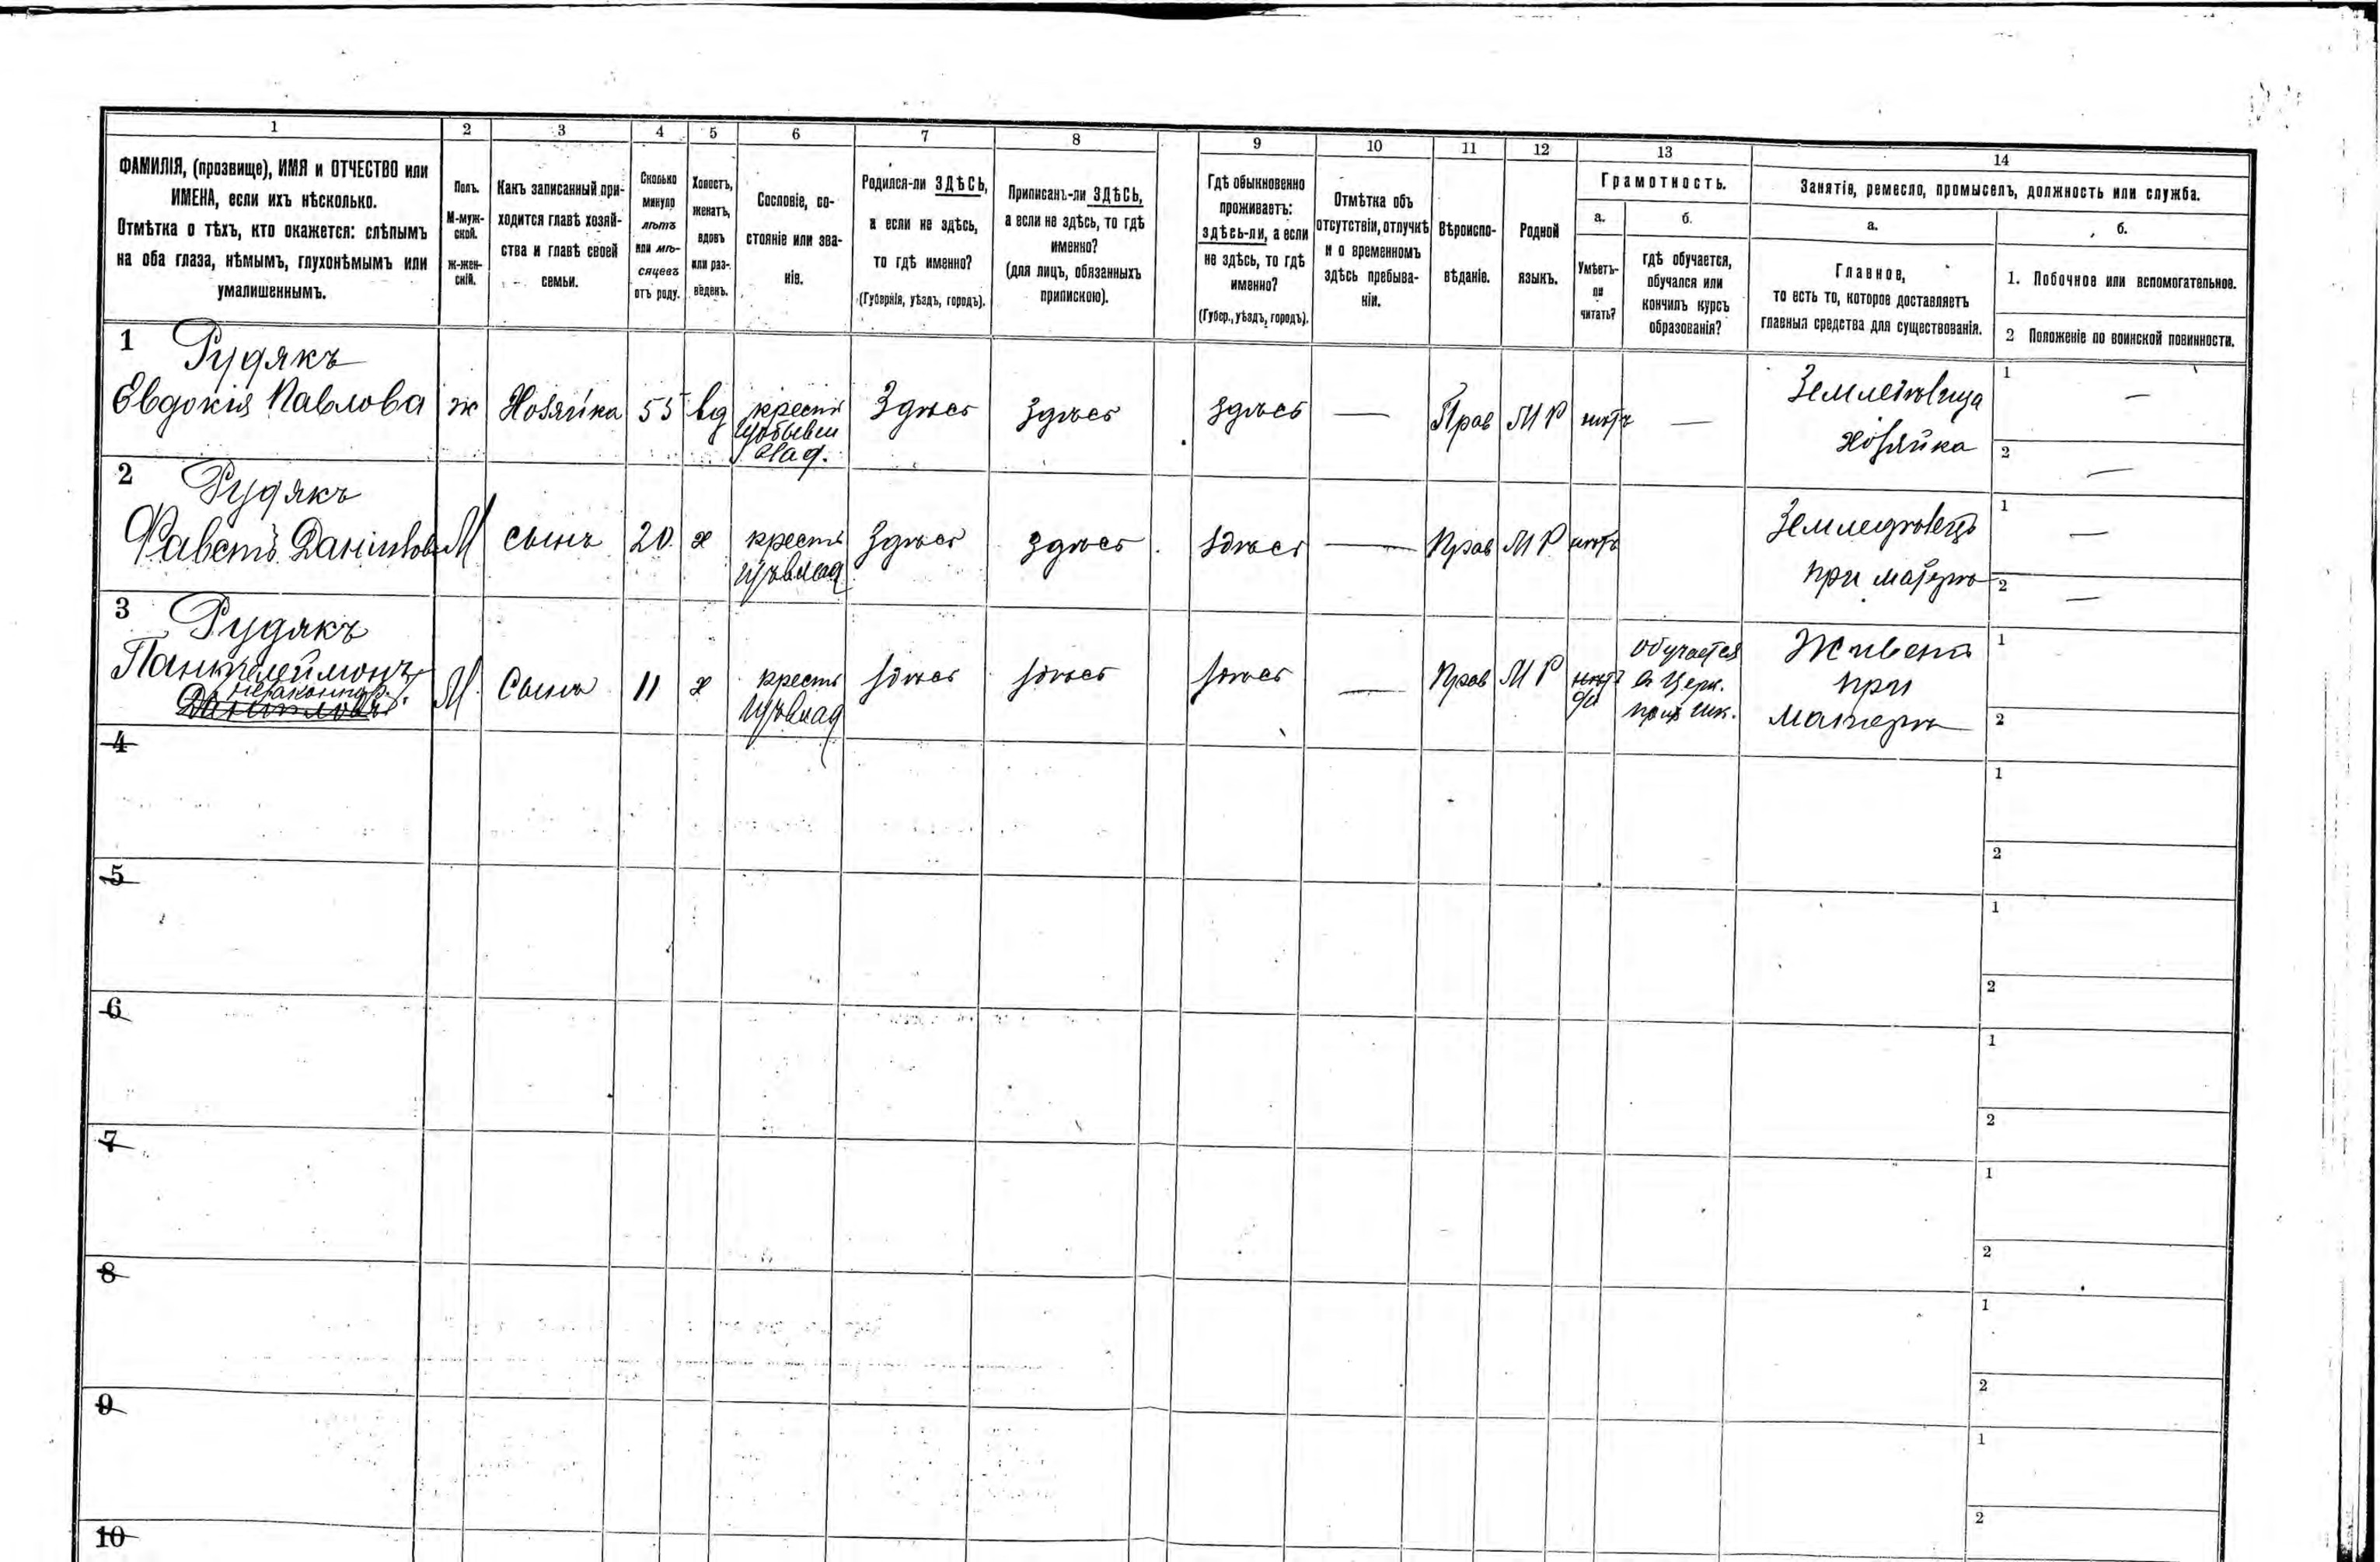 1 2 3 4 5 6 7 8 9 10 11 12 13 14
ФАМИЛІЯ, (прозвище), ИМЯ и ОТЧЕСТВО или
ИМЕНА, если ихъ нѣсколько.
Отмѣтка о тѣхъ, кто окажется: слѣпымъ
на оба глаза, нѣмымъ, глухонѣмымъ или
умалишеннымъ.
Полъ.
М-муж-
ской.
ж-жен-
скій.
Какъ записанный при-
ходится главѣ хозяй-
ства и главѣ своей
семьи.
Сколько
минуло
лѣтъ
или мѣ-
сяцевъ
отъ роду.
Холостъ,
женатъ,
вдовъ
или раз-
веденъ.
Сословіе, со-
стояніе или зва-
ніе.
Родился-ли ЗДѢСЬ,
а если не здѣсь,
то гдѣ именно?
(Губернія, уѣздъ, городъ).
Приписанъ-ли ЗДѢСЬ,
а если не здѣсь, то гдѣ
именно?
(для лицъ, обязанныхъ
припискою).
Гдѣ обыкновенно
проживаетъ:
здѣсь-ли, а если
не здѣсь, то гдѣ
именно?
(Губер., уѣздъ, городъ).
Отмѣтка объ
отсутствіи, отлучкѣ
и о временномъ
здѣсь пребыва-
ніи.
Вѣроиспо-
вѣданіе.
Родной
языкъ.
Грамотность.
а.
Умѣетъ-
ли
читать?
б.
гдѣ обучается,
обучался или
кончилъ курсъ
образованія?
Занятіе, ремесло, промыселъ, должность или служба.
а.
Главное,
то есть то, которое доставляетъ
главныя средства для существованія.
б.
1. Побочное или вспомогательное.
2 Положеніе по воинской повинности.
1 Рудякъ
Евдокія Павлова ж Хозяйка 55 вд крестъ
влад.
Здѣсь здѣсь здѣсь — Прав М Р нѣтъ —
хозяйка
1 —
2 —
2 Рудякъ
М сынъ 20 х крестъ
Здѣсь здѣсь здѣсь — Прав М Р нѣтъ
Земледѣлецъ
при матери
1 —
2 —
3 Рудякъ
Пантелеймонъ
незаконнор.
Даниловъ
М. Сынъ 11 х крестъ
здѣсь здѣсь здѣсь — Прав М Р нѣтъ
да
обучается
въ Церк.
прих шк.
Живетъ
при
матери
1
2
4
1
2
5
1
2
6
1
2
7
1
2
8
1
2
9
1
2
10